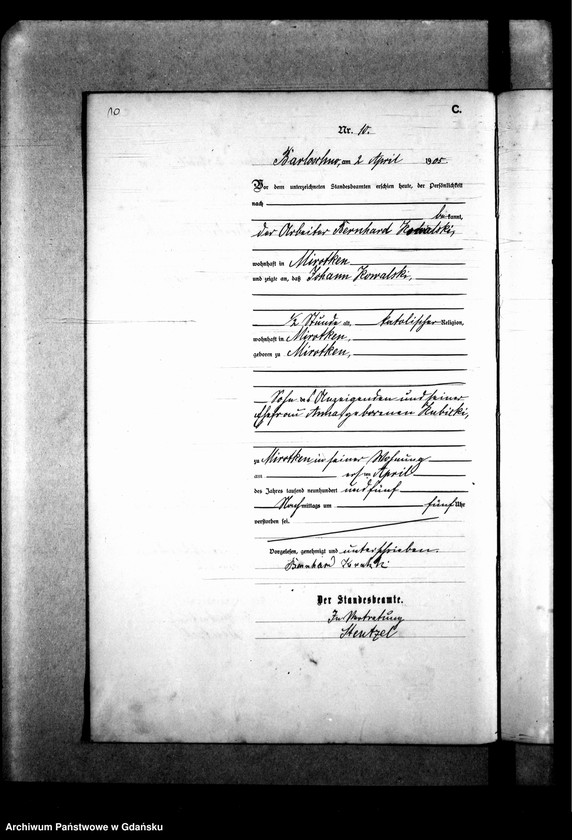 10
C.
Nr. 10.
am 2 April 1905
Vor dem unterzeichneten Standesbeamten erschien heute, der Persönlichkeit
nach
bekannt,
der Arbeiter Bernhard Kowalski,
wohnhaft in Mirotken
und zeigte an, daß Johann Kowalski,
1/2 Stunde katolischer Religion,
wohnhaft in Mirotken,
geboren zu Mirotken,
Sohn des Anzeigenden und seiner
Ehefrau Anna geborenen Kubicki,
zu Mirotken, in seiner Wohnung
am ersten April
des Jahres tausend neunhundert und fünf
Nachmittags um fünf Uhr
verstorben sei.
Vorgelesen, genehmigt und unterschrieben.
Bernhard
Der Standesbeamte.
In Vertretung
Stentzel
Archiwum Państwowe w Gdańsku